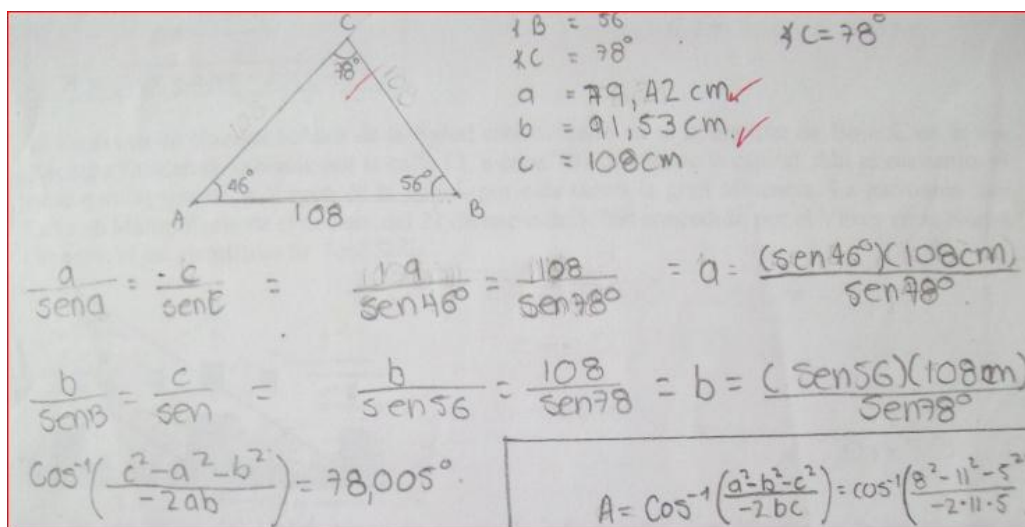 C
78°
46°
56°
A
108
B
∡B = 56
∡C = 78°
a = 79,42 cm
b = 91,53 cm
c = 108cm
∡C=78°
a/sena = c/senC = a/sen46° = 108/sen78° = a = (sen46°)(108cm)/sen78°
b/senB = c/sen = b/sen56 = 108/sen78 = b = (sen56)(108cm)/sen78°
Cos⁻¹((c²-a²-b²)/(-2ab)) = 78,005°
A = Cos⁻¹((a²-b²-c²)/(-2bc)) = cos⁻¹((8²-11²-5²)/(-2·11·5